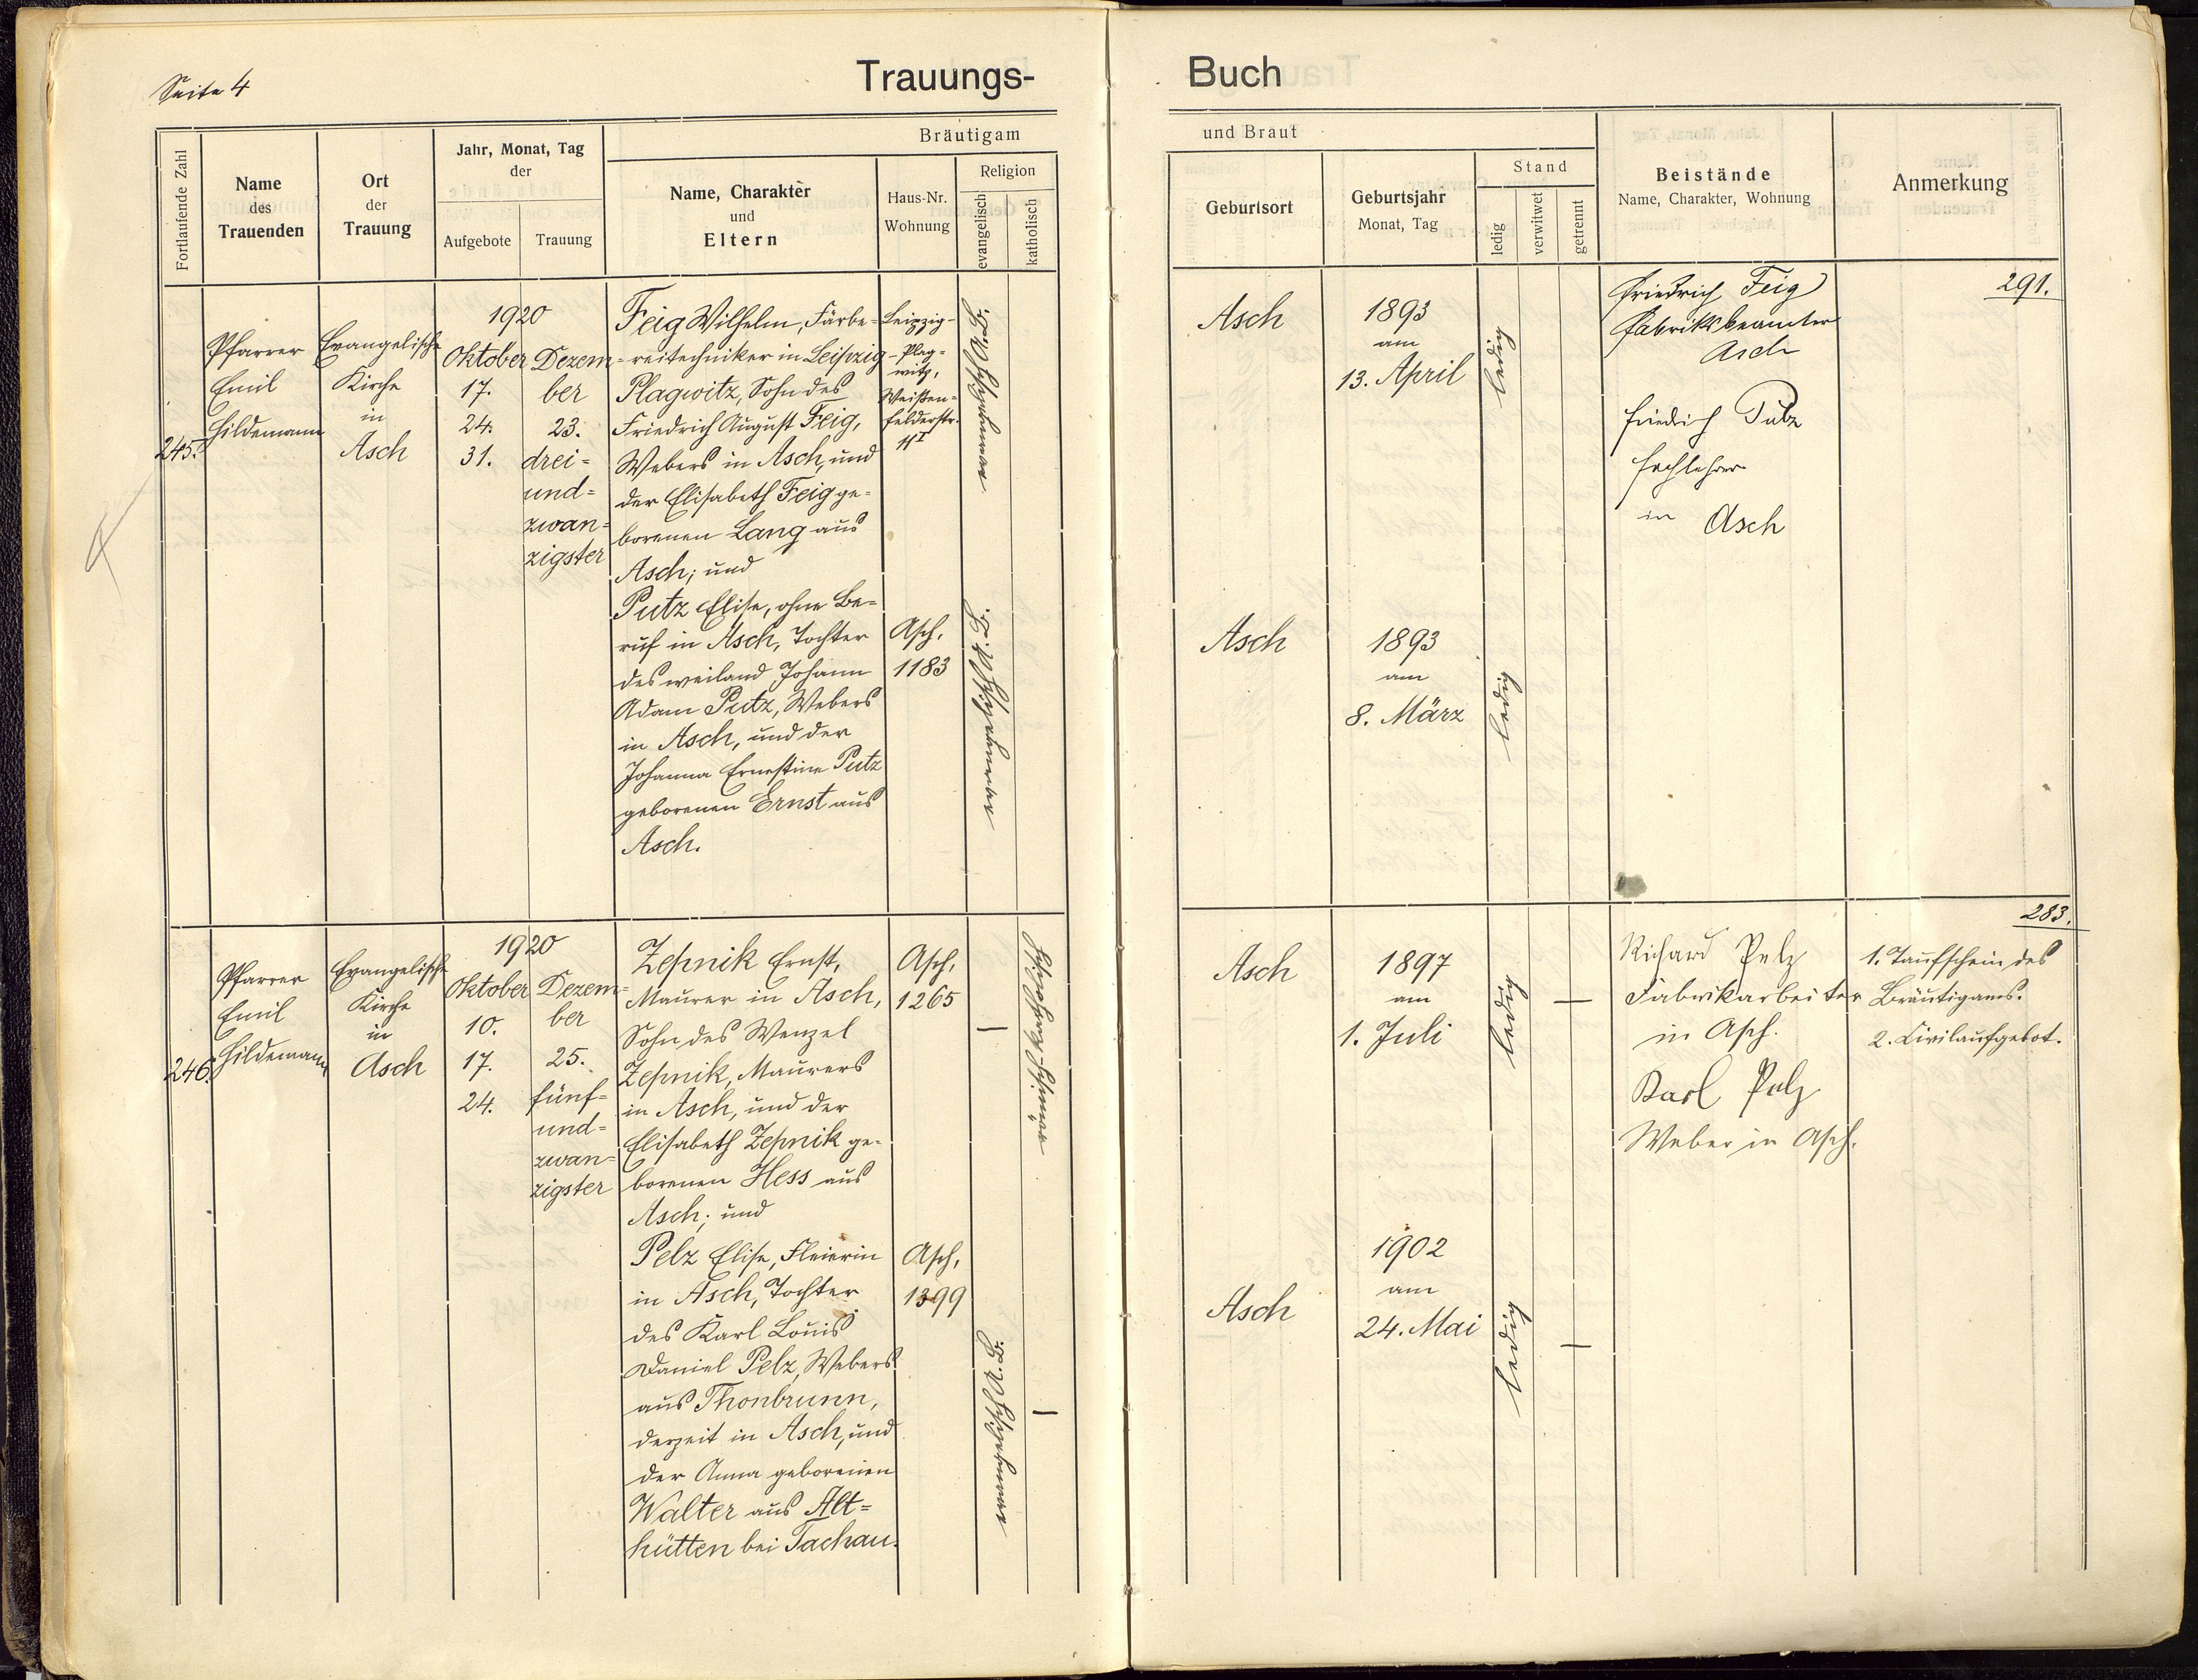 Seite 4
Trauungs-
Fortlaufende Zahl
Name
des
Trauenden
Ort
der
Trauung
Jahr, Monat, Tag
der
Aufgebote
Trauung
Bräutigam
Name, Charakter
und
Eltern
Haus-Nr.
Wohnung
Religion
evangelisch
katholisch
245.
Pfarrer
Emil
Hildemann
Evangelische
Kirche
in
Asch
1920
Oktober
17.
24.
31.
Dezem-
ber
23.
drei-
und-
zwan-
zigster
Feig Wilhelm, Färbe-
reitechniker in Leipzig-
Plagwitz, Sohn des
Friedrich August Feig,
Webers in Asch, und
der Elisabeth Feig ge-
borenen Lang aus
Asch; und
Putz Elise, ohne Be-
ruf in Asch, Tochter
des weiland Johann
Adam Putz, Webers
in Asch, und der
Johanna Ernestine Putz
geborenen Ernst aus
Asch.
Leipzig-
Plag-
witz,
Weißen-
felderstr.
11 I
Asch,
1183
246.
Pfarrer
Emil
Hildemann
Evangelische
Kirche
in
Asch
1920
Oktober
10.
17.
24.
Dezem-
ber
25.
fünf-
und-
zwan-
zigster
Zepnik Ernst,
Maurer in Asch,
Sohn des Wenzel
Zepnik, Maurers
in Asch, und der
Elisabeth Zepnik ge-
borenen Hess aus
Asch; und
Pelz Elise, Fleierin
in Asch, Tochter
des Karl Louis
Daniel Pelz, Webers
aus Thonbrunn,
derzeit in Asch, und
der Anna geborenen
Walter aus Alt-
hütten bei Tachau.
Asch,
1265
Asch,
1399
Buch
und Braut
Geburtsort
Geburtsjahr
Monat, Tag
Stand
ledig
verwitwet
getrennt
Beistände
Name, Charakter, Wohnung
Anmerkung
Asch
1893
am
13. April
ledig
Friedrich Feig
Fabriksbeamter
Asch
Friedrich Putz
Fachlehrer
in Asch
291.
Asch
1893
am
8. März
ledig
Asch
1897
am
1. Juli
ledig
Richard Pelz
Fabrikarbeiter
in Asch.
Karl Pelz
Weber in Asch.
283.
1. Taufschein des
Bräutigams.
2. Civilaufgebot.
Asch
1902
am
24. Mai
ledig